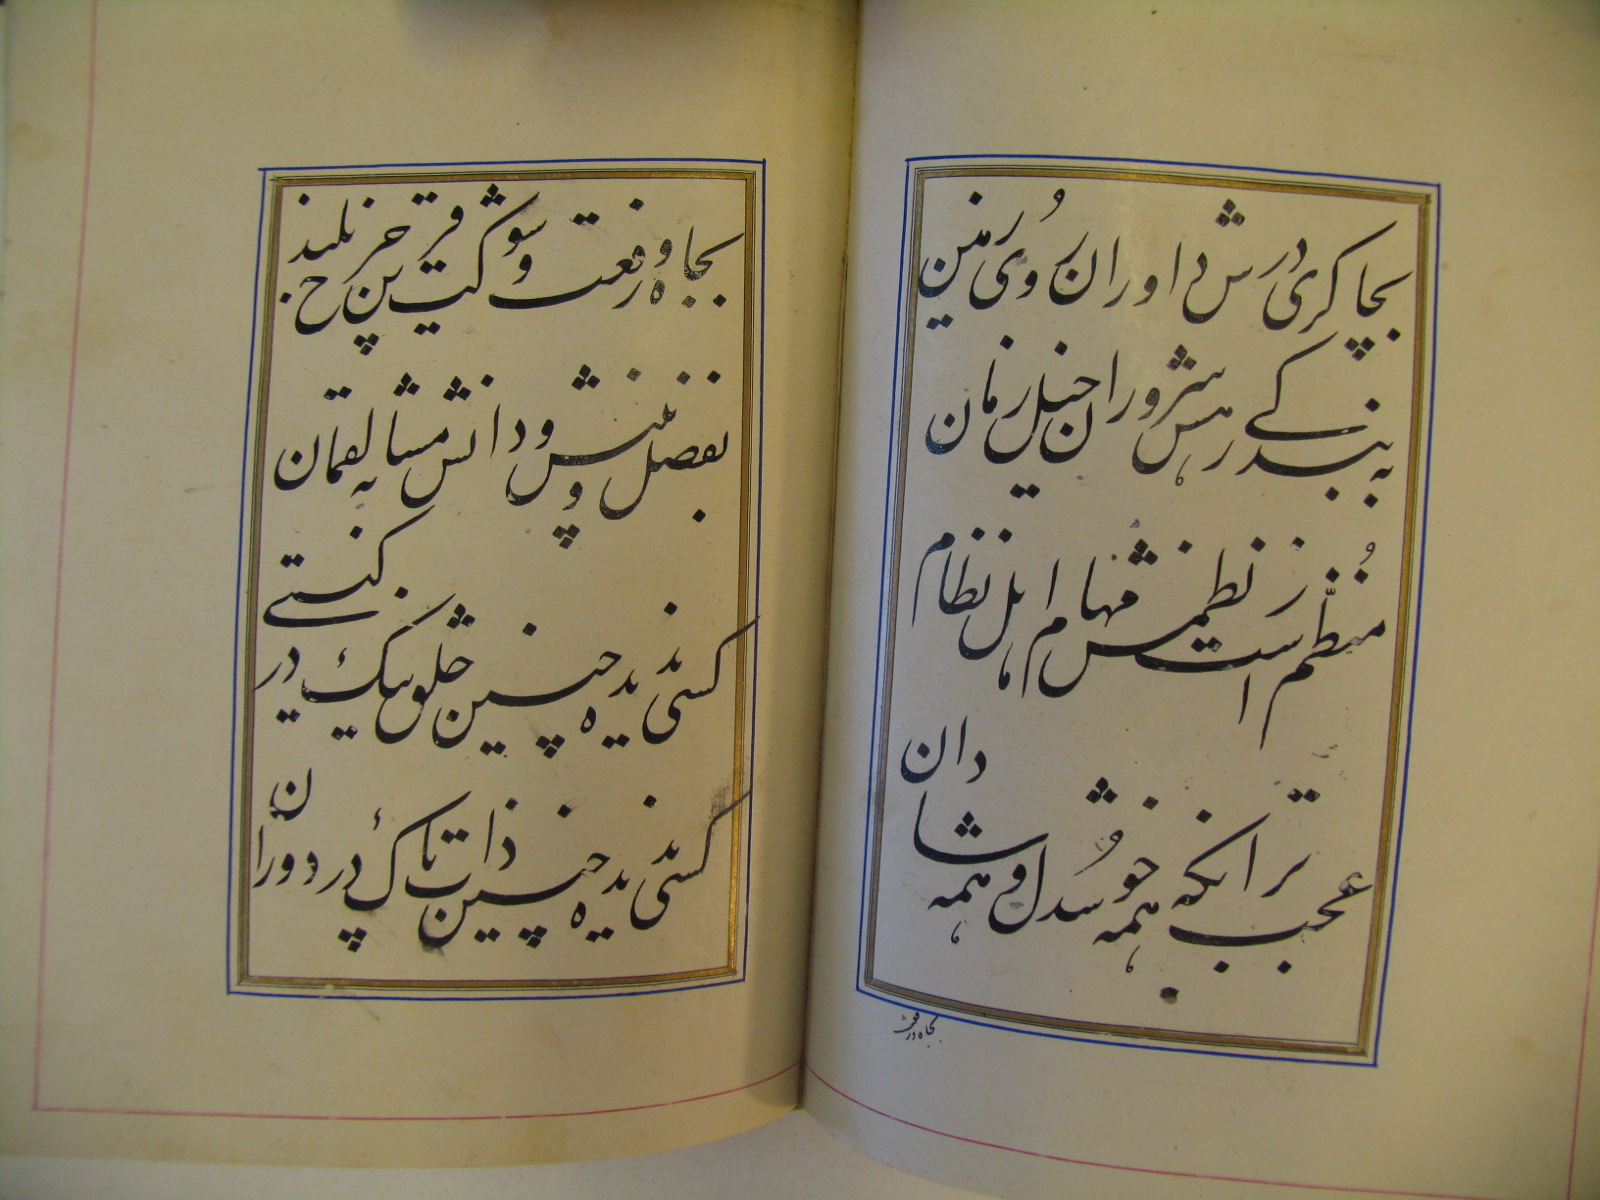 بچاکری درش داوران روی زمین
به بندکی هنروران خیل زمان
منظم است ز نظمش مهام اهل نظام
عجب ترانکه همه خوشدل و همه شادان
بجاه رفعت
بجاه و رفعت و شوکت قرین چرخ بلند
بفضل و بینش و دانش مشابه لقمان
کسی ندیده چنین خلق نیک در کیتی
کسی ندیده چنین ذات پاک در دوران